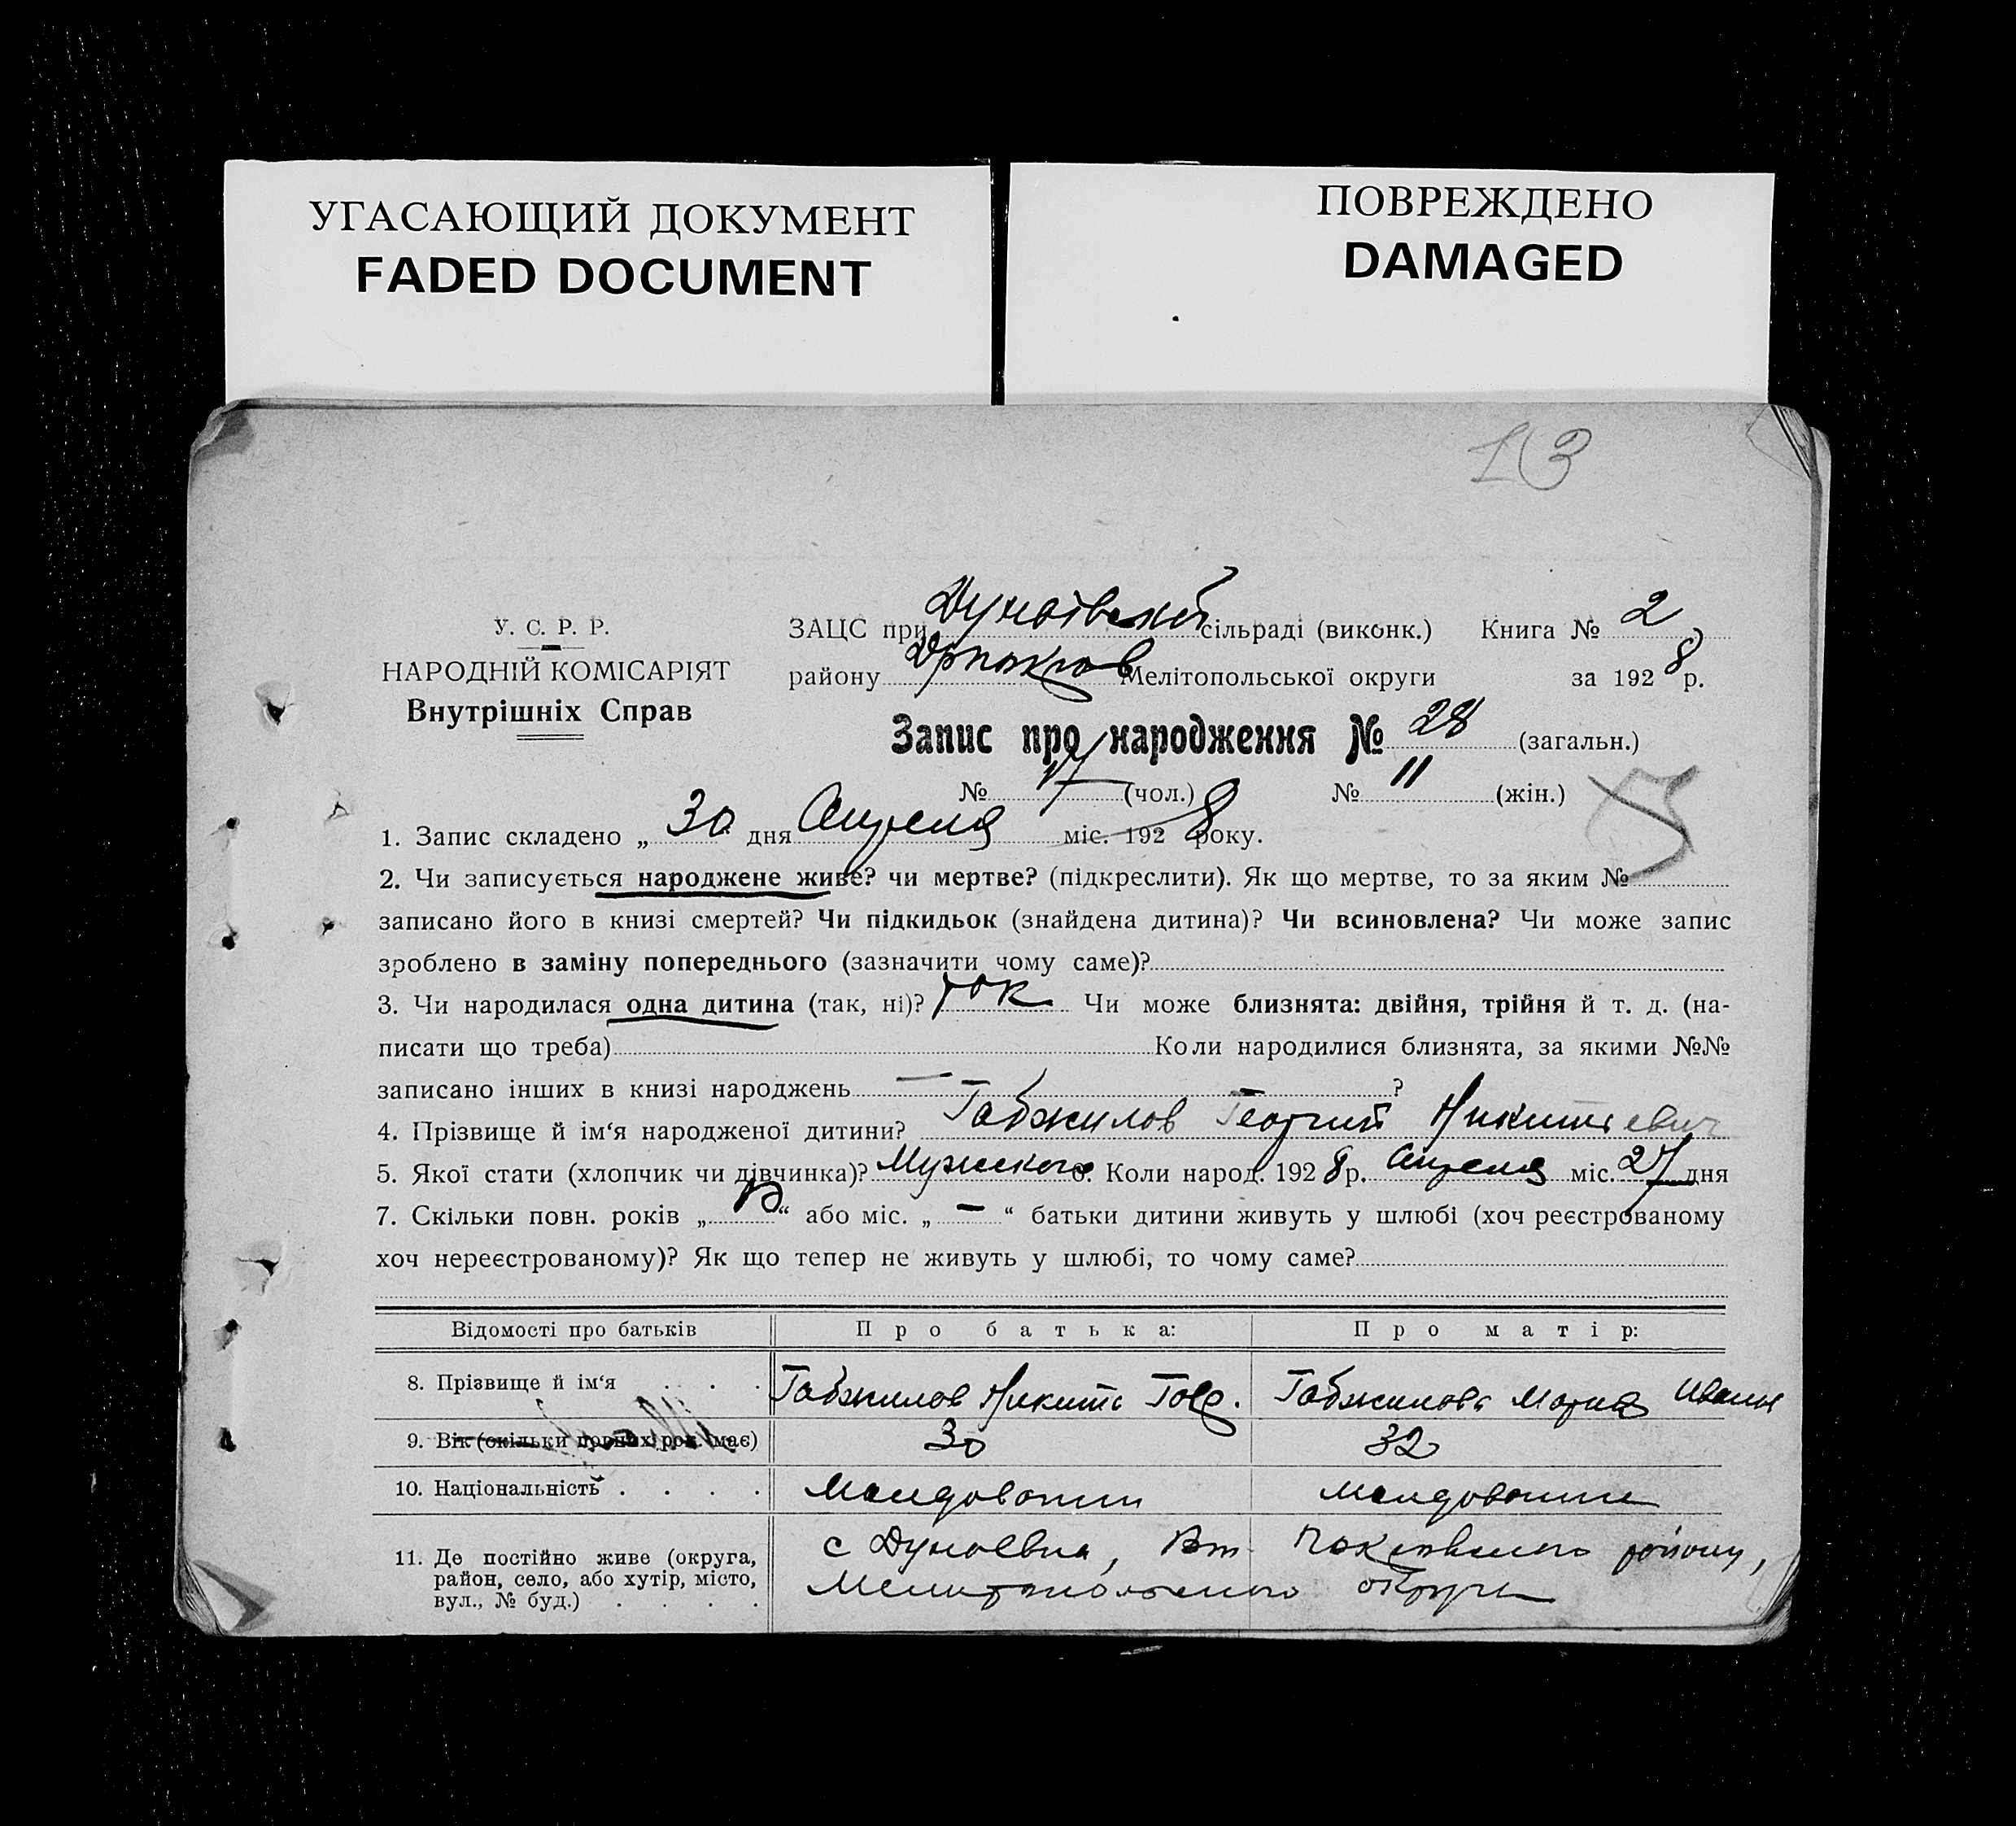 УГАСАЮЩИЙ ДОКУМЕНТ
FADED DOCUMENT
ПОВРЕЖДЕНО
DAMAGED
13
У. С. Р. Р.
НАРОДНІЙ КОМІСАРІЯТ
Внутрішніх Справ
ЗАЦС при сільраді (виконк.) Книга № 2
району Мелітопольської округи за 1928 р.
Запис про народження № 28 (загальн.)
№ 17 (чол.) № 11 (жін.)
1. Запис складено „ 30 дня Апреля міс. 1928 року.
2. Чи записується народжене живе? чи мертве? (підкреслити). Як що мертве, то за яким №
записано його в книзі смертей? Чи підкидьок (знайдена дитина)? Чи всиновлена? Чи може запис
зроблено в заміну попереднього (зазначити чому саме)?
3. Чи народилася одна дитина (так, ні)? так Чи може близнята: двійня, трійня й т. д. (на-
писати що треба) Коли народилися близнята, за якими №№
записано інших в книзі народжень — ?
4. Прізвище й ім‘я народженої дитини? Габжилов Георгий Никитиевич
5. Якої стати (хлопчик чи дівчинка)? Мужского 6. Коли народ. 1928 р. Апреля міс. 27 дня
7. Скільки повн. років „ “ або міс. „ — “ батьки дитини живуть у шлюбі (хоч реєстрованому
хоч нереєстрованому)? Як що тепер не живуть у шлюбі, то чому саме?
Відомості про батьків Про батька: Про матір:
8. Прізвище й ім‘я . . . Габжилов Никита Габжилова Мария Иванов
9. Вік (скільки повних рок. має) 30 32
10. Національність . . . . Молдованин молдованин
11. Де постійно живе (округа, с Дунаевка, Вт- Покровского району,
район, село, або хутір, місто, Мелитопольского округи
вул., № буд.) . . . .